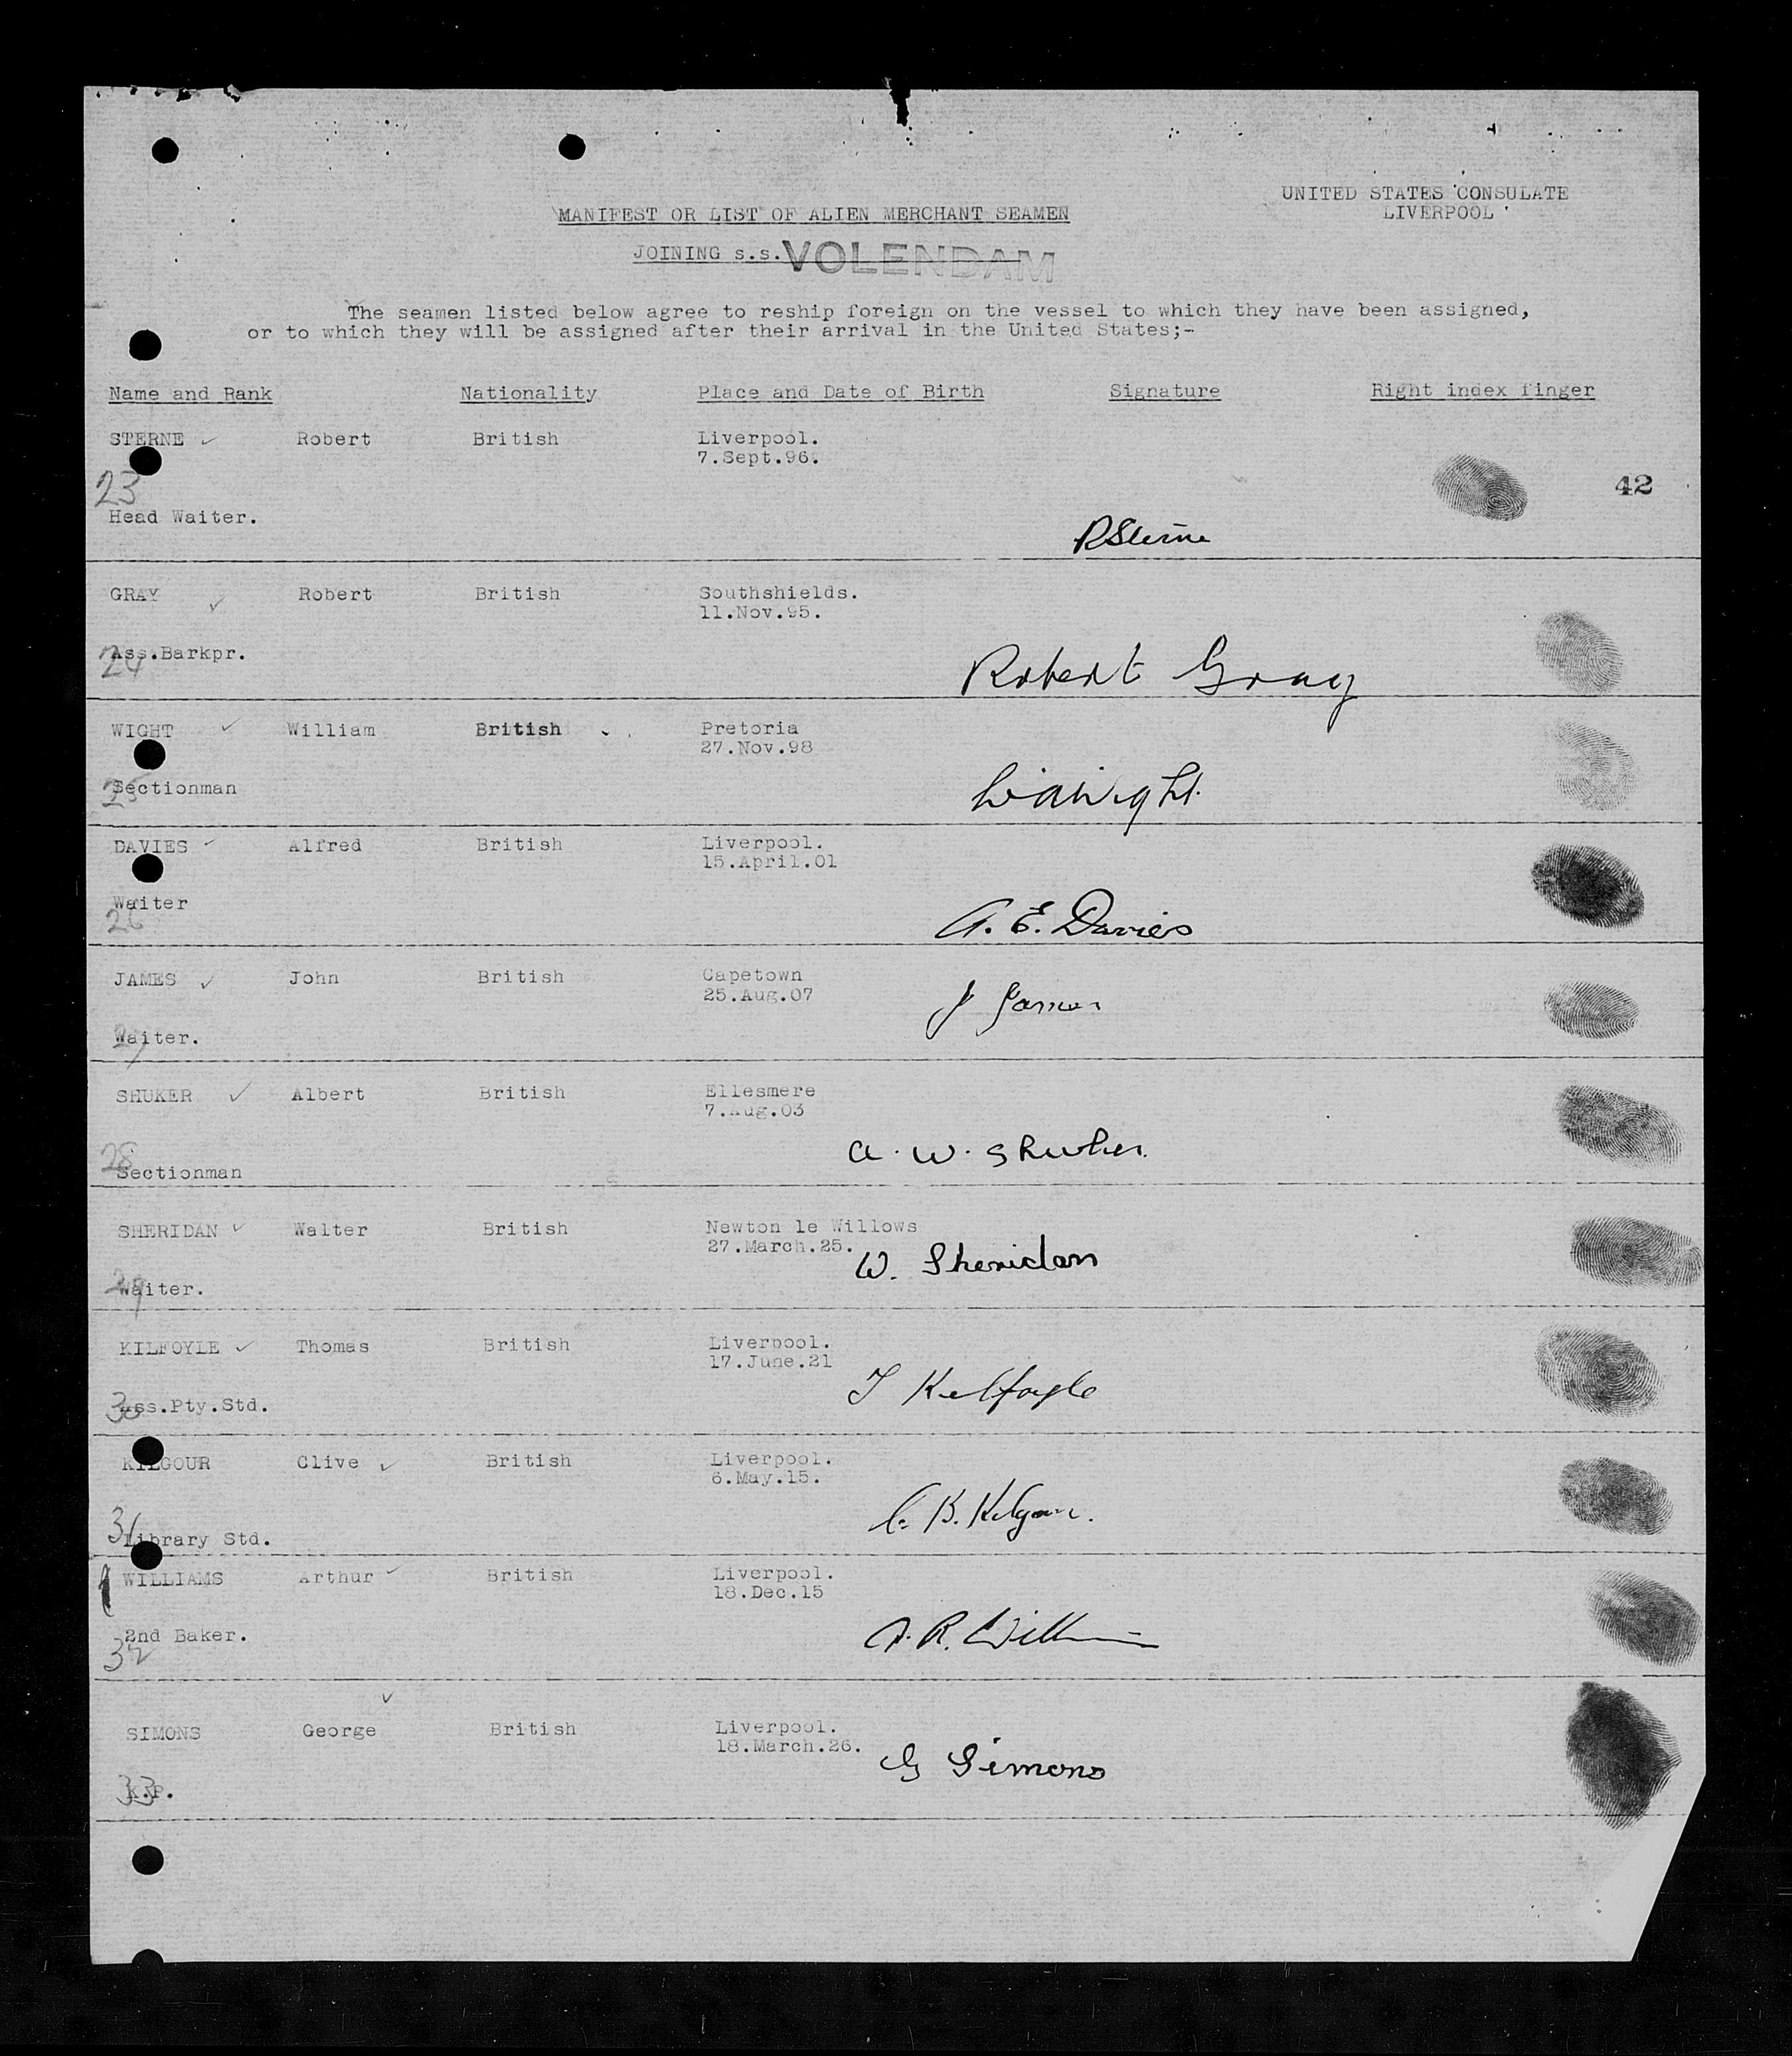 UNITED STATES CONSULATE
LIVERPOOL
MANIFEST OR LIST OF ALIEN MERCHANT SEAMEN
JOINING s.s. VOLENDAM
The seamen listed below agree to reship foreign on the vessel to which they have been assigned,
or to which they will be assigned after their arrival in the United States;-
Name and Rank Nationality Place and Date of Birth Signature Right index finger
STERNE ✓ Robert British Liverpool.
7.Sept.96.
23 42
Head Waiter.
R Sterne
GRAY ✓ Robert British Southshields.
11.Nov.95.
24 Ass.Barkpr.
Robert Gray
WIGHT ✓ William British Pretoria
27.Nov.98
25 Sectionman
Wight
DAVIES ✓ Alfred British Liverpool.
15.April.01
Waiter
26 A. E. Davies
JAMES ✓ John British Capetown
25.Aug.07
J James
27 Waiter.
SHUKER ✓ Albert British Ellesmere
7.Aug.03
A. W. Shuker
28
Sectionman
SHERIDAN ✓ Walter British Newton le Willows
27.March.25.
W. Sheridan
29 Waiter.
KILFOYLE ✓ Thomas British Liverpool.
17.June.21
T Kilfoyle
30 Ass.Pty.Std.
KILGOUR Clive ✓ British Liverpool.
6.May.15.
C. B. Kilgour.
31
Library Std.
WILLIAMS Arthur ✓ British Liverpool.
18.Dec.15
2nd Baker.
A. R. Williams
32
SIMONS George ✓ British Liverpool.
18.March.26.
G Simons
33 K.P.